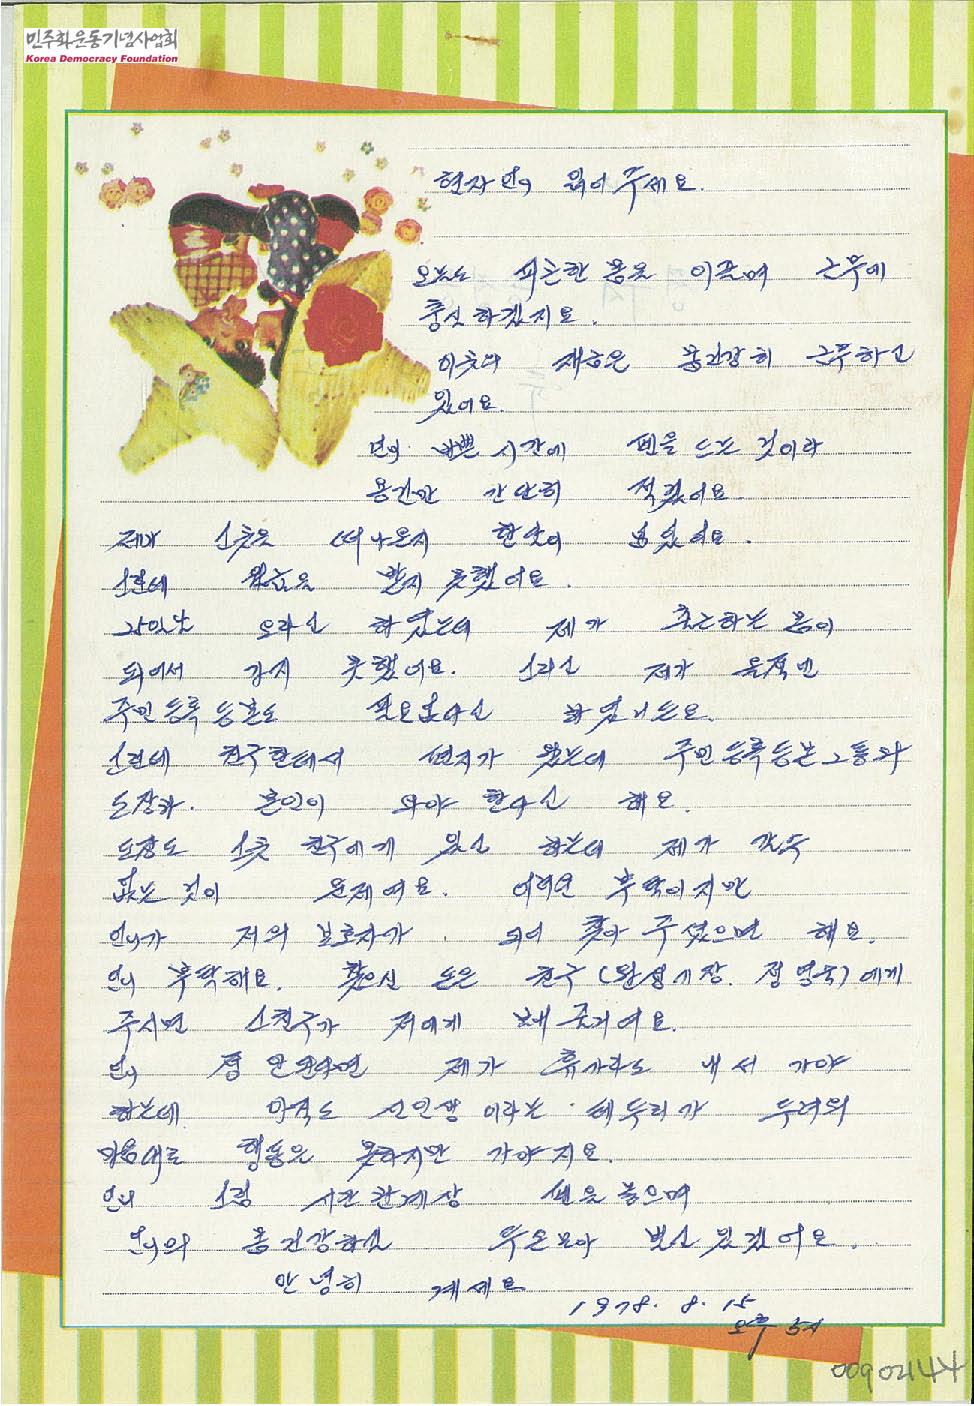 민주화운동기념사업회
Korea Democracy Foundation
현자 언니 읽어 주세요.
오늘도 피곤한 몸을 이끌며 근무에
충실하겠지요.
이곳의 재순은 몸건강히 근무하고
있어요.
언니 바쁜 시간에 펜을 드는 것이라
용건만 간단히 적겠어요.
제가 그곳을 떠나온지 한달이 넘었어요.
그런데 월급을 받지 못했어요.
오라고 하였는데 제가 출근하는 몸이
되어서 가지 못했어요. 그리고 제가 옮적엔
주민등록등본도 필요없다고 하였거든요.
그런데 친구한테서 편지가 왔는데 주민등록등본 그통과
도장과. 본인이 와야 한다고 해요.
도장도 그곳 친구에게 있고 하는데 제가 갈 수
없는 것이 문제여요. 어려운 부탁이지만
언니가 저의 보호자가 되어 찾아 주셨으면 해요.
언니 부탁해요. 찾으신 돈은 친구 (완성1장. 정영숙)에게
주시면 그 친구가 저에게 보내 줄거여요.
언니 정 안된다면 제가 휴가라도 내서 가야
하는데 아직도 신인생이라는 테두리가 두려워
마음대로 행동은 못하지만 가야지요.
언니 그럼 시간관계상 펜을 놓으며
언니의 몸건강하심 두손모아 빌고 있겠어요.
안녕히 계세요
1978. 8. 15
오후 5시
00902144